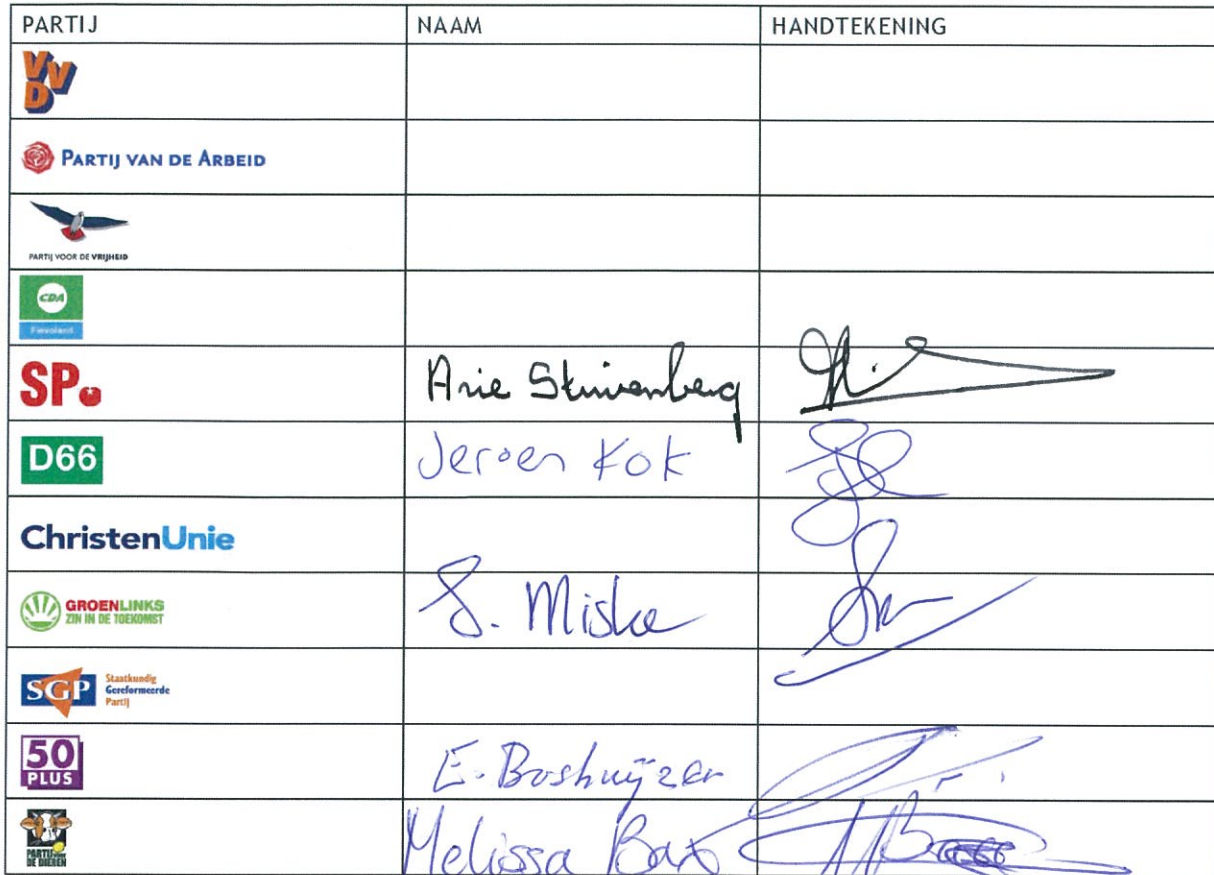 PARTIJ NAAM HANDTEKENING
VVD
PARTIJ VAN DE ARBEID
PARTIJ VOOR DE VRIJHEID
CDA
Flevoland
SP. Arie Stuivenberg
D66 Jeroen Kok
ChristenUnie
GROENLINKS S. Miske
ZIN IN DE TOEKOMST
SGP Staatkundig
Gereformeerde
Partij
50 E. Boshuijzer
PLUS
PARTIJ voor Melissa Bax
DE DIEREN